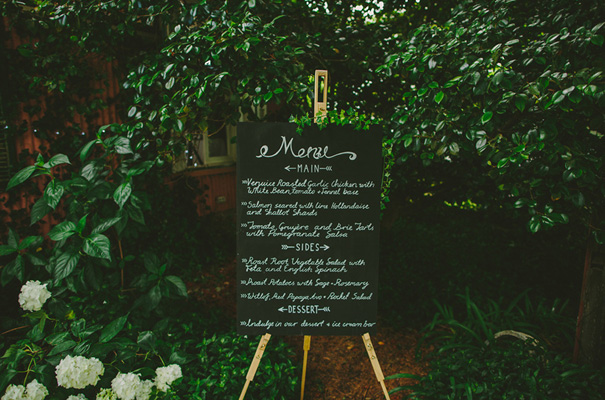 Menu
MAIN
Verjuice Roasted Garlic Chicken with
White Bean, tomato + Fennel base
Salmon seared with Lime Hollandaise
and Shallot Shards
Tomato, Gruyère and Brie Tarts
with Pomegranate Salsa
SIDES
Roast Root Vegetable Salad with
Feta and English Spinach
Roast Potatoes with Sage + Rosemary
Red Papaya, Avo + Rocket Salad
DESSERT
Indulge in our dessert + ice cream bar